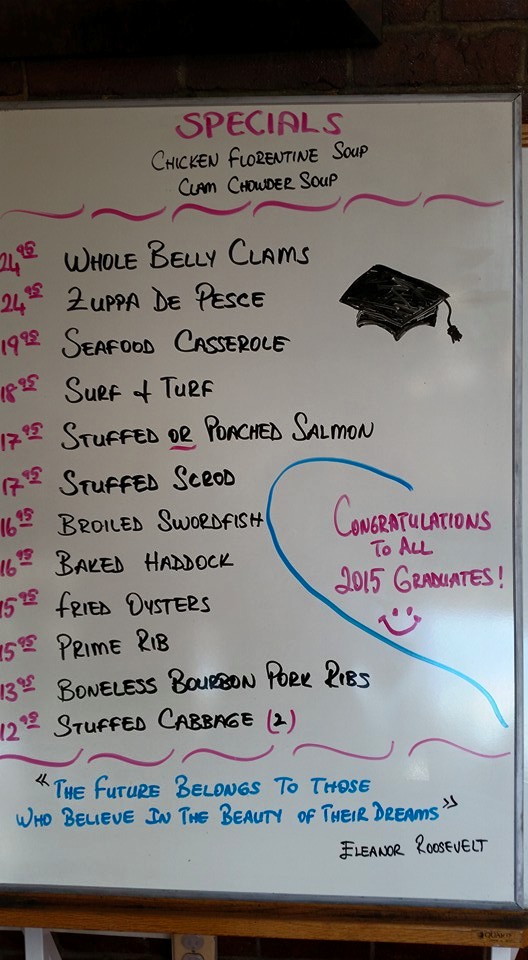 SPECIALS
CHICKEN FLORENTINE SOUP
CLAM CHOWDER SOUP
24.95 WHOLE BELLY CLAMS
24.95 ZUPPA DE PESCE
19.95 SEAFOOD CASSEROLE
18.95 SURF & TURF
17.95 STUFFED OR POACHED SALMON
17.95 STUFFED SCROD
16.95 BROILED SWORDFISH
16.95 BAKED HADDOCK
15.95 FRIED OYSTERS
15.95 PRIME RIB
13.95 BONELESS BOURBON PORK RIBS
12.95 STUFFED CABBAGE (2)
CONGRATULATIONS
TO ALL
2015 GRADUATES!
"THE FUTURE BELONGS TO THOSE
WHO BELIEVE IN THE BEAUTY OF THEIR DREAMS"
ELEANOR ROOSEVELT
QUARTET